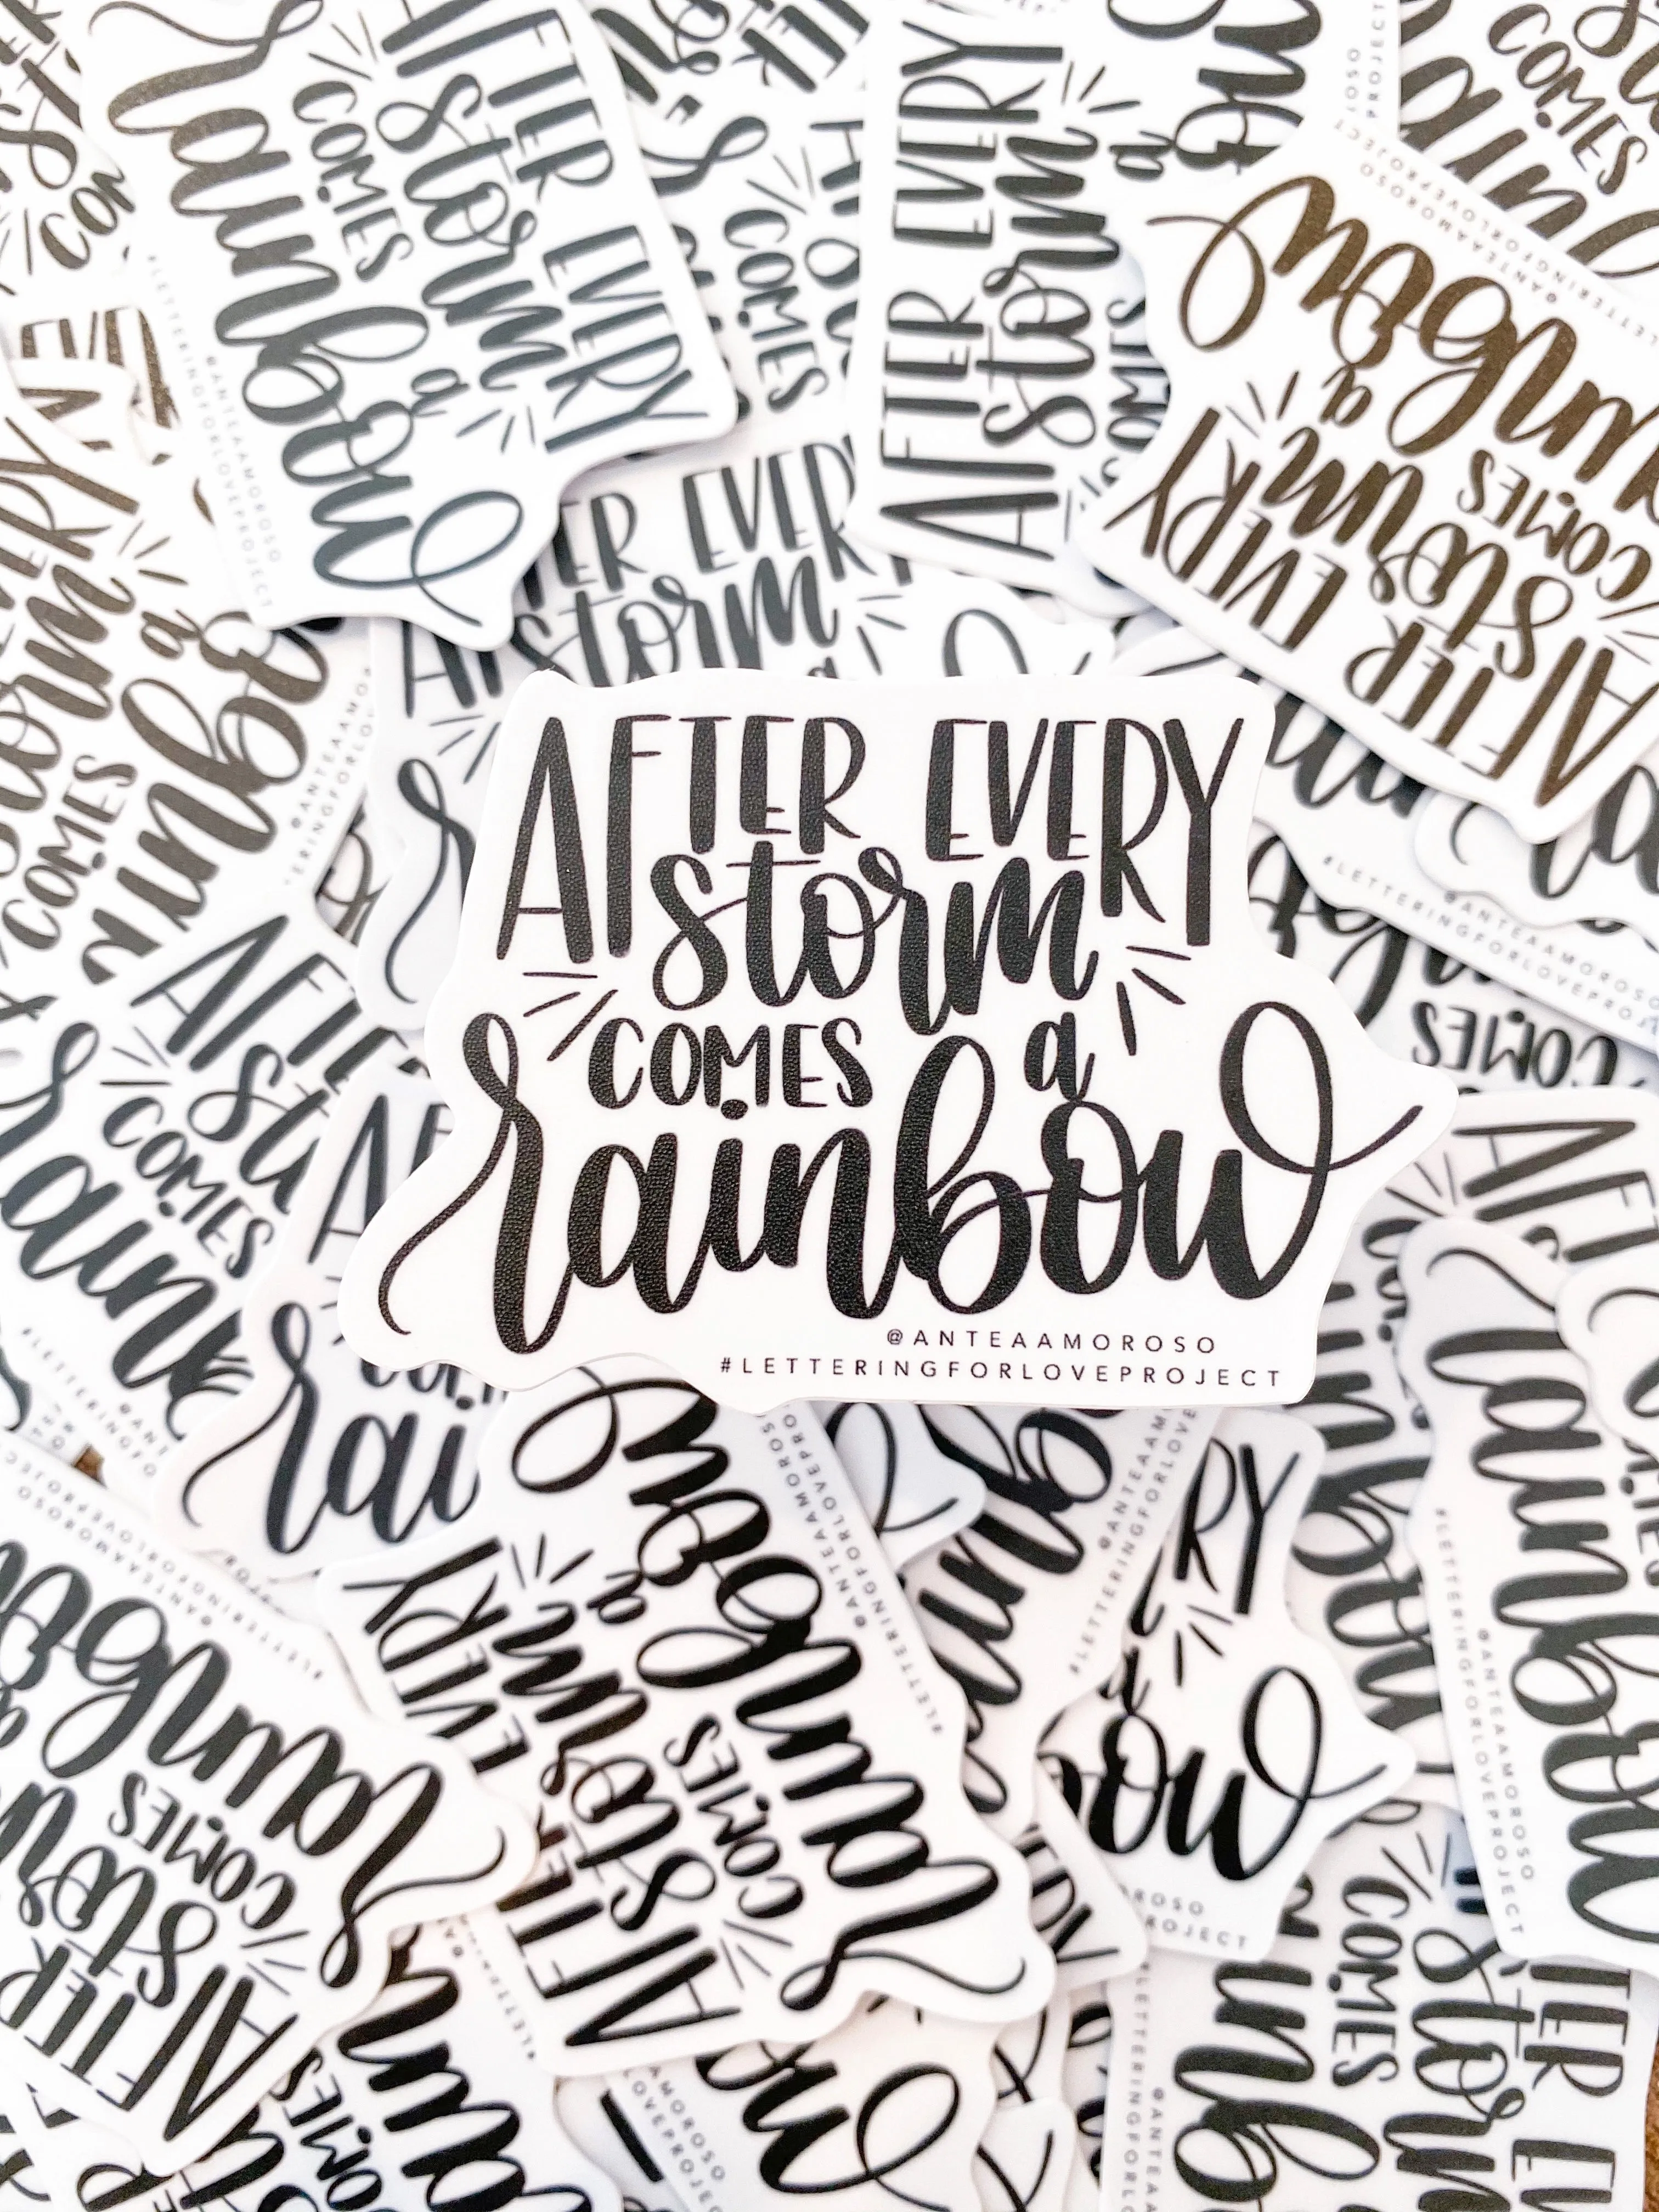 AFTER EVERY
storm
COMES a
rainbow
@ANTEAAMOROSO
#LETTERINGFORLOVEPROJECT